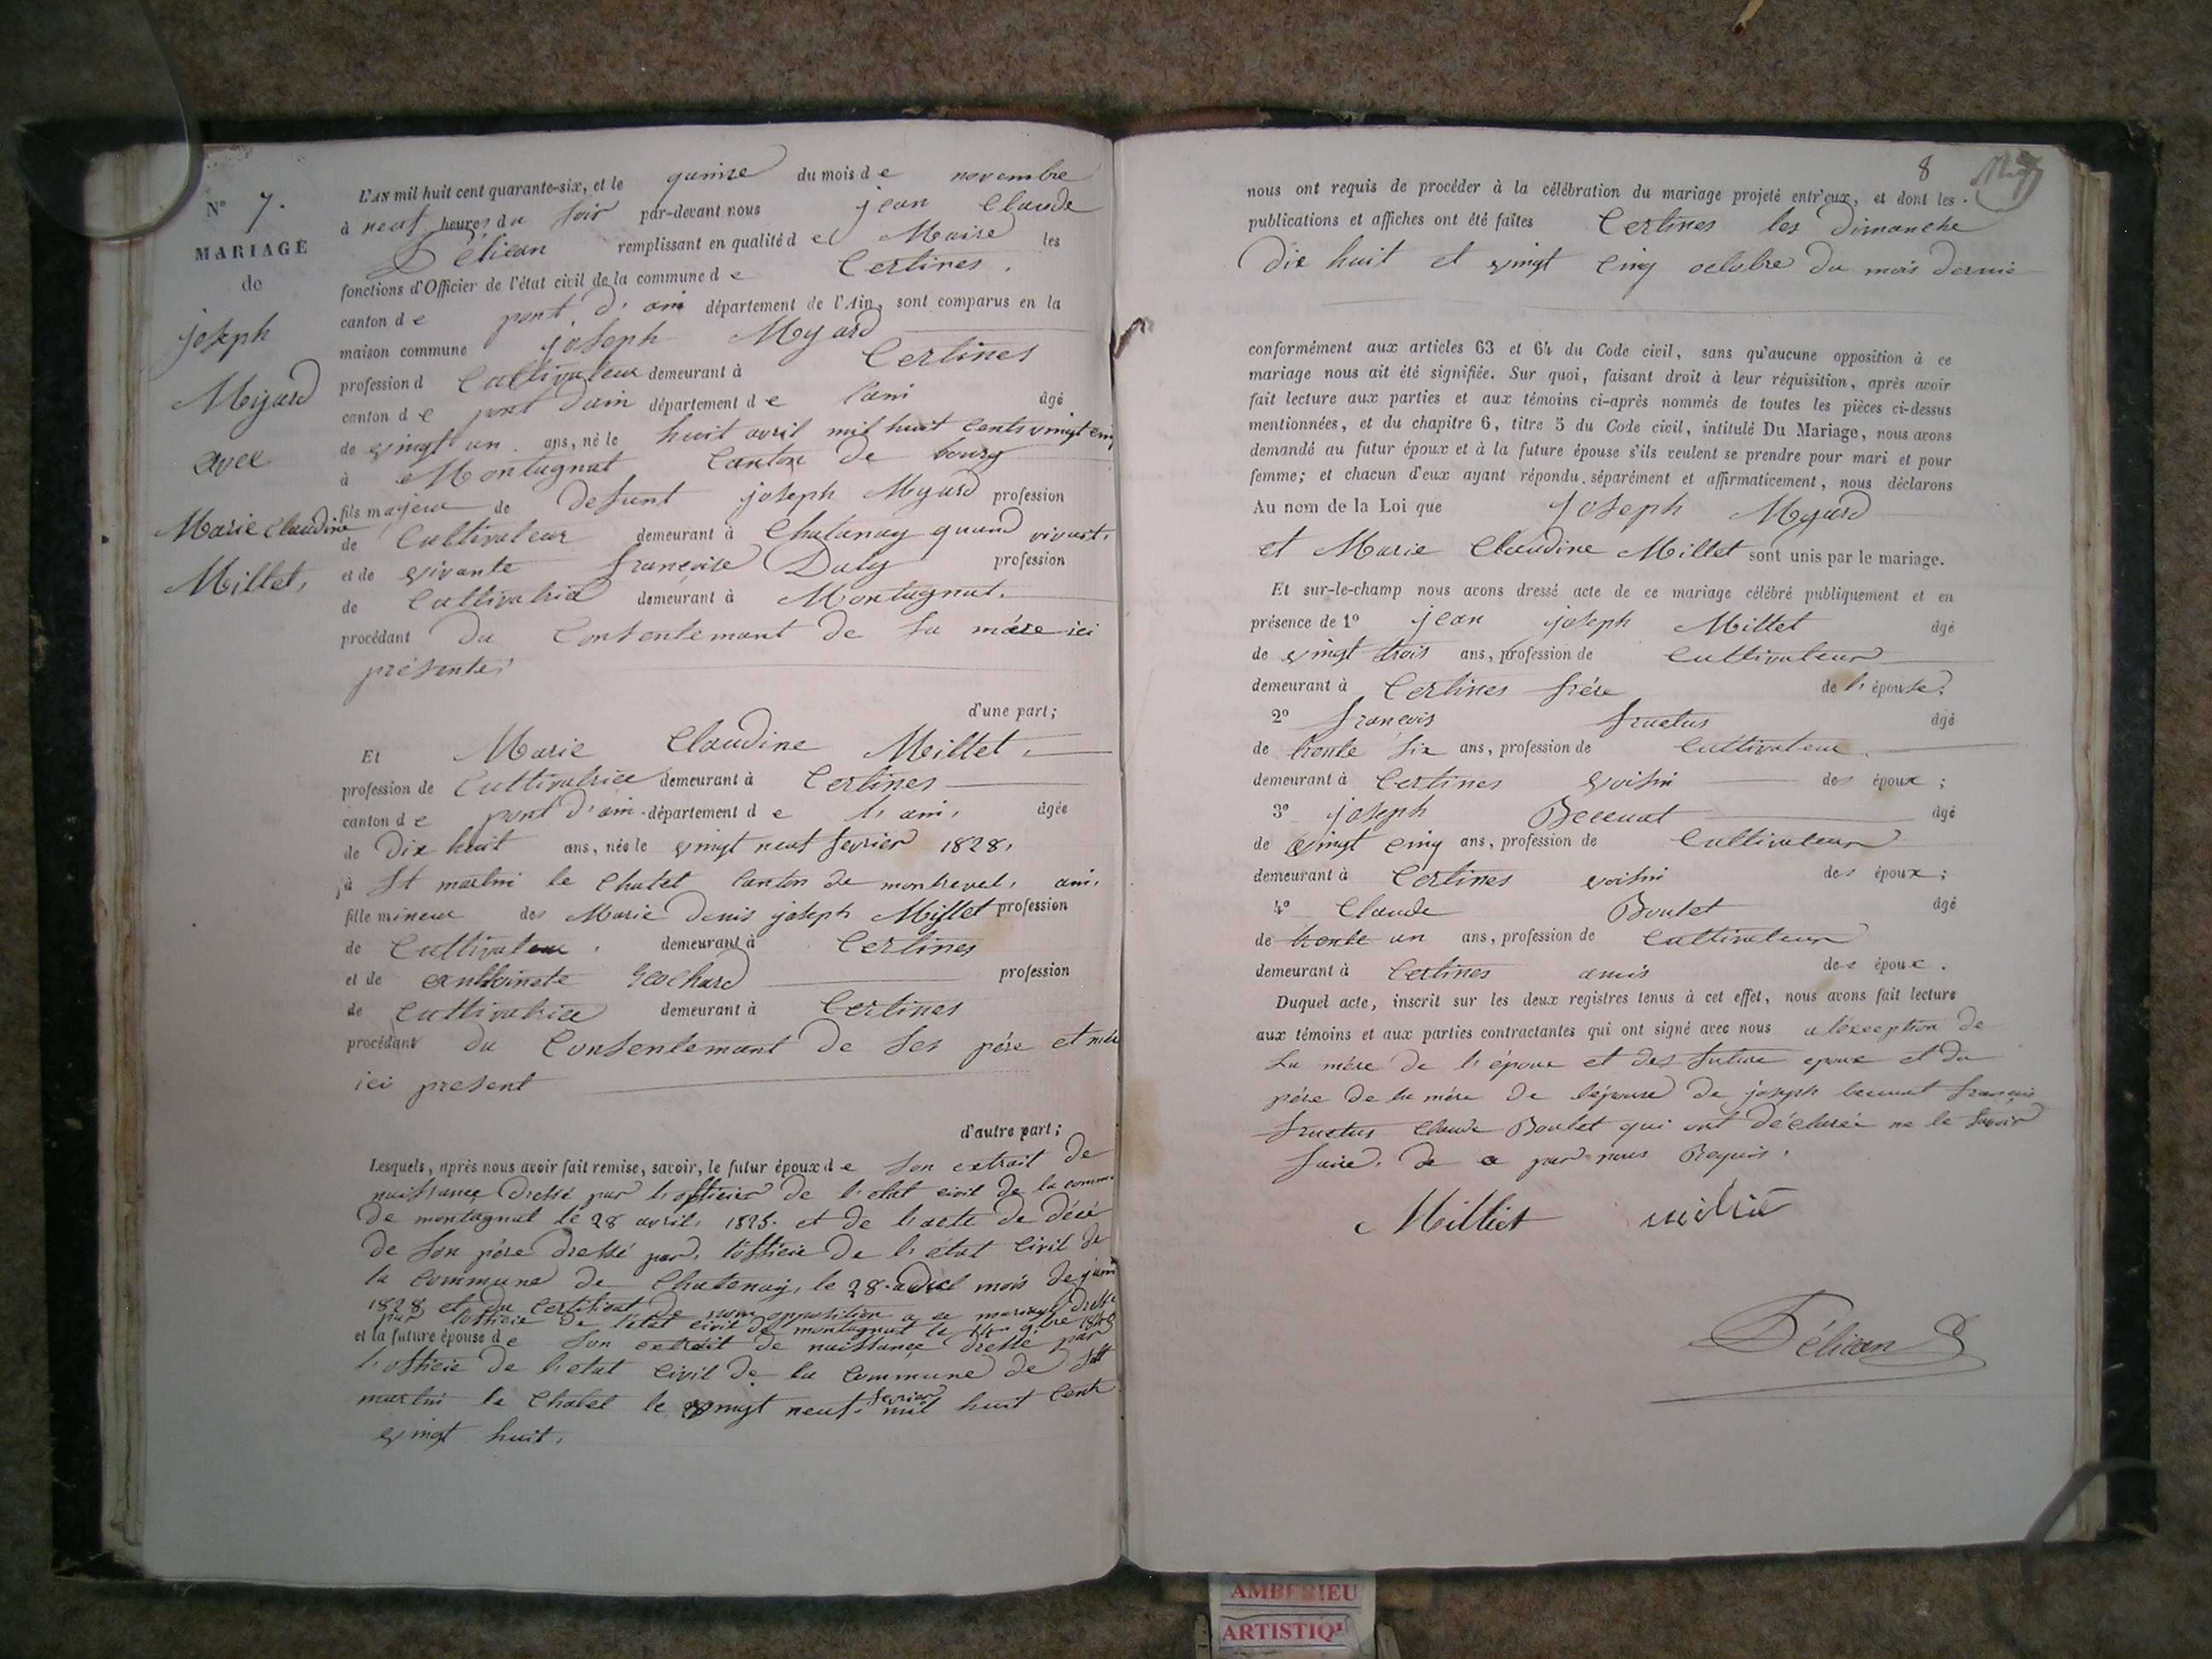 N° 7.
MARIAGE
de
joseph
Myard
avec
Marie Claudine
Millet,
L'AN mil huit cent quarante-six, et le quinze du mois de novembre
à neuf heures du soir par-devant nous jean Claude
Pélican remplissant en qualité de Maire les
fonctions d'Officier de l'état civil de la commune de Certines.
canton de pont d'ain département de l'Ain, sont comparus en la
maison commune joseph Myard
profession d Cultivateur demeurant à Certines
canton de pont d'ain département de l'ain âgé
de vingt un ans, né le huit avril mil huit cents vingt cinq
à Montagnat Canton de bourg
fils majeur de defunt joseph Myard profession
de Cultivateur demeurant à Chatenay quand vivait,
et de vivante françoise Duby profession
de Cultivatrice demeurant à Montagnat.
procédant du Consentemant de sa mére ici
présente,
d'une part;
Et Marie Claudine Millet.
profession de Cultivatrice demeurant à Certines
canton de pont d'ain département de l'ain, âgée
de dix huit ans, née le vingt neuf fevrier 1828,
à St martin le Chatel Canton de montrevel, ain,
fille mineur des Marie Denis joseph Millet profession
de Cultivateur. demeurant à Certines
et de anthoinete profession
de Cultivatrice demeurant à Certines
procédant du Consentemant de ses pére et mére
ici present
d'autre part;
Lesquels, après nous avoir fait remise, savoir, le futur époux de son extrait de
naissance dressé par l'officier de l'etat civil de la comm
de montagnat le 28 avril, 1825. et de l'acte de décé
de son pére dressé par l'officie de l'état civil de
la commune de Chatenay, le 28 mois de juin
1828, et du certificat de non opposition a ce mariage dressé
par l'officie de l'état civil de montagnat le 9.bre
et la future épouse de son extrait de naissance dressé par
l'officie de l'etat civil de la commune de St
martin le Chatel le vingt neuf fevrier mil huit cent
vingt huit.
8
nous ont requis de procéder à la célébration du mariage projeté entr'eux, et dont les
publications et affiches ont été faites Certines les dimanche
dix huit et vingt cinq octobre du mois dernie
conformément aux articles 63 et 64 du Code civil, sans qu'aucune opposition à ce
mariage nous ait été signifiée. Sur quoi, faisant droit à leur réquisition, après avoir
fait lecture aux parties et aux témoins ci-après nommés de toutes les pièces ci-dessus
mentionnées, et du chapitre 6, titre 5 du Code civil, intitulé Du Mariage, nous avons
demandé au futur époux et à la future épouse s'ils veulent se prendre pour mari et pour
femme; et chacun d'eux ayant répondu séparément et affirmativement, nous déclarons
Au nom de la Loi que joseph Myard
et Marie Claudine Millet sont unis par le mariage.
Et sur-le-champ nous avons dressé acte de ce mariage célébré publiquement et en
présence de 1° jean joseph Millet âgé
de vingt trois ans, profession de Cultivateur
demeurant à Certines frére de l'épouse,
2° françois fructus âgé
de trente six ans, profession de Cultivateur
demeurant à Certines voisin des époux;
3° joseph Beccuat âgé
de vingt cinq ans, profession de Cultivateur
demeurant à Certines voisin des époux;
4° Claude Boulet âgé
de trente un ans, profession de Cultivateur
demeurant à Certines amis des époux.
Duquel acte, inscrit sur les deux registres tenus à cet effet, nous avons fait lecture
aux témoins et aux parties contractantes qui ont signé avec nous a l'exception de
la mére de l'époux et des future epoux et du
pére de la mére de l'épouse de joseph beccuat françois
fructus Claude Boulet qui ont déclaré ne le savoir
faire, de ce par nous Requis.
Milliet
Pélican
AMBERIEU
ARTISTIQ